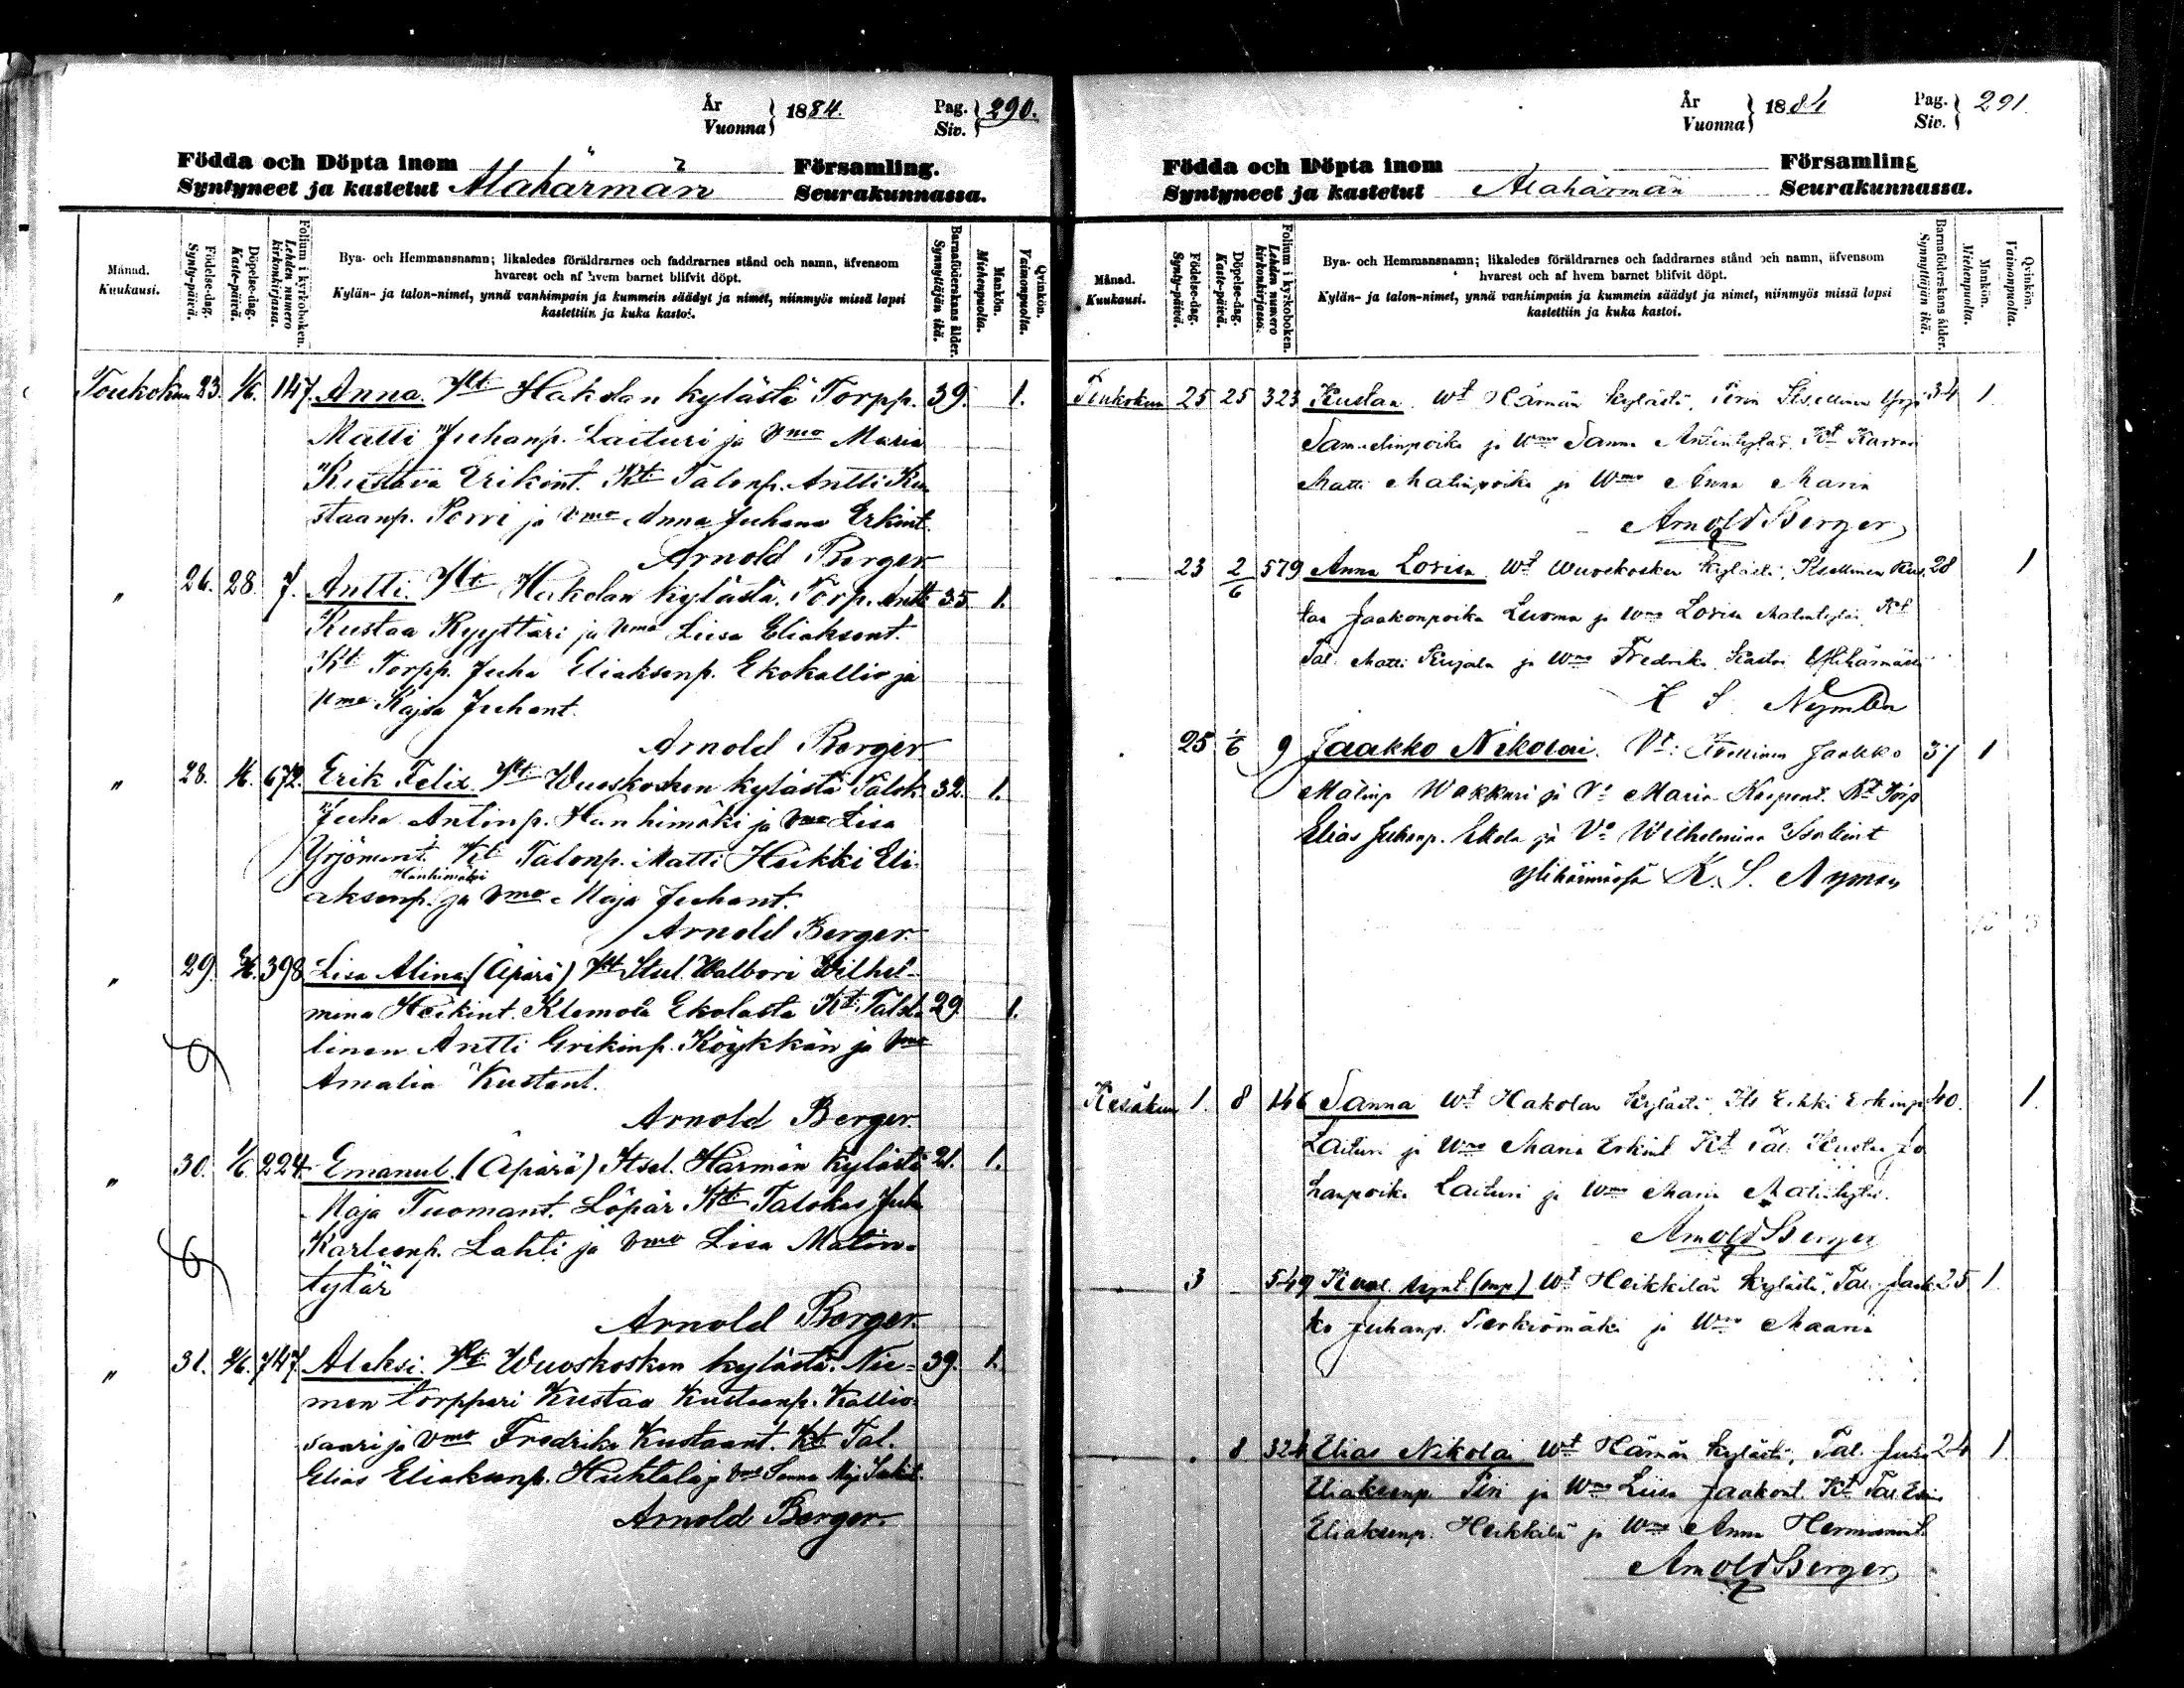 År
Vuonna } 1884. Pag.
Siv. } 290.
Födda och Döpta inom Församling.
Syntyneet ja kastetut Alahärmän Seurakunnassa.
Månad.
Kuukausi.
Födelse-dag.
Synty-päivä.
Döpelse-dag.
Kaste-päivä.
Folium i kyrkoboken.
Lehden numero
kirkonkirjassa.
Bya- och Hemmansnamn; likaledes föräldrarnes och faddrarnes stånd och namn, äfvensom
hvarest och af hvem barnet blifvit döpt.
Kylän- ja talon-nimet, ynnä vanhimpain ja kummein säädyt ja nimet, niinmyös missä lapsi
kastettiin ja kuka kastoi.
Barnaföderskans ålder.
Synnyttäjän ikä.
Mankön.
Miehenpuolta.
Qvinkön.
Vaimonpuolta.
Toukokuu 23. 1/6. 147. Anna. Wt Hakolan kylästä Torpp. 39. 1.
Matti Juhanp. Laituri ja Vmo Maria
Kustava Erikint. Kt Talonp. Antti Ku
staanp. Porri ja Vmo Anna Juhana Erkint.
Arnold Berger
" 26. 28. 7. Antti. Wt Hakolan kylästä. Torp. Antti 35. 1.
Kustaa Ryyttäri ja Vmo Liisa Eliaksent.
Kt Torpp. Juha Eliaksenp. Ekokallio ja
Vmo Kajsa Juhant.
Arnold Berger
" 28. 1/6. 672. Erik Felix. Wt Wuoskosken kylästä Talok. 32. 1.
Juha Antinp. Hanhimäki ja Vmo Lisa
Yrjönint. Kt Talonp. Matti Heikki Eli-
Hanhimäki
aksenp. ja Vmo Maja Juhant.
Arnold Berger.
" 29. 398 Lisa Alina (Äpärä) Wt Itsel. Walbori Wilhel-
mina Heikint. Klemola Ekolasta Kt. Talol- 29. 1.
linen Antti Erikinp. Köykkän ja Vmo
Amalia Kustant.
Arnold Berger.
" 30. 1/6. 224. Emanuel. (Äpärä) Itsel. Härmän kylästä 21. 1.
Maja Tuomant. Löpär Kt Talokas Juha
Karlenp. Lahti ja Vmo Lisa Matin-
tytär
Arnold Berger.
" 31. 747. Aleksi. Wt Wuoskosken kylästä. Nie- 39. 1.
men torppari Kustaa Kustaanp. Kallio-
saari ja Vmo Fredrika Kustaant. Kt Tal.
Elias Eliaksenp. Huhtala ja Vmo Sanna Maj
Arnold Berger.
År
Vuonna } 1884 Pag.
Siv. } 291
Födda och Döpta inom Församling
Syntyneet ja kastetut Alahärmän Seurakunnassa.
Månad.
Kuukausi.
Födelse-dag.
Synty-päivä.
Döpelse-dag.
Kaste-päivä.
Folium i kyrkoboken.
Lehden numero
kirkonkirjassa.
Bya- och Hemmansnamn; likaledes föräldrarnes och faddrarnes stånd och namn, äfvensom
hvarest och af hvem barnet blifvit döpt.
Kylän- ja talon-nimet, ynnä vanhimpain ja kummein säädyt ja nimet, niinmyös missä lapsi
kastettiin ja kuka kastoi.
Barnaföderskans ålder.
Synnyttäjän ikä.
Mankön.
Miehenpuolta.
Qvinkön.
Vaimonpuolta.
Toukokuu 25 25 323 Kustaa. Wt Härmän kylästä, 34 1
Samelinpoika ja Wmo Sanna Antintytär. Kt
Matti Matinpoika ja Wmo Anna Maria
Arnold Berger
23 2/6 579 Anna Lovisa. Wt Wuoskosken kylästä, Itsellinen Kus 28 1
taa Jaakonpoika Luoma ja Wmo Lovisa Matintytär Kt
Tal. Matti Kujala ja Wmo Fredrika. Kastoi Ylihärmässä
K S Nyman
25 1/6 9 Jaakko Nikolai. Vt: Itsellinen Jaakko 37 1
Matinp Wakkuri ja Vo Maria Kt Torp
Elias Juhanp. Ekola ja Vo Wilhelmina
Ylihärmässä K. S. Nyman
Kesäkuu 1. 8 146 Sanna Wt Hakolan kylästä, Its Erkki Erkinp 40. 1.
Laituri ja Wmo Maria Erkint Kt Tal. Kustaa Jo
hanpoika Laituri ja Wmo Maria Matintytär.
Arnold Berger
3 549 Kuol. synt. (mp.) Wt Heikkilän kylästä, Tal. Jaak 25 1.
ko Juhanp. Perkiömäki ja Wmo Maaria
8 324 Elias Nikolai Wt Härmän kylästä, Tal. Juha 24 1
Eliaksenp. ja Wmo Liisa Jaakont. Kt Tal.
Eliaksenp. Heikkilä ja Wmo Anna Hermannint.
Arnold Berger